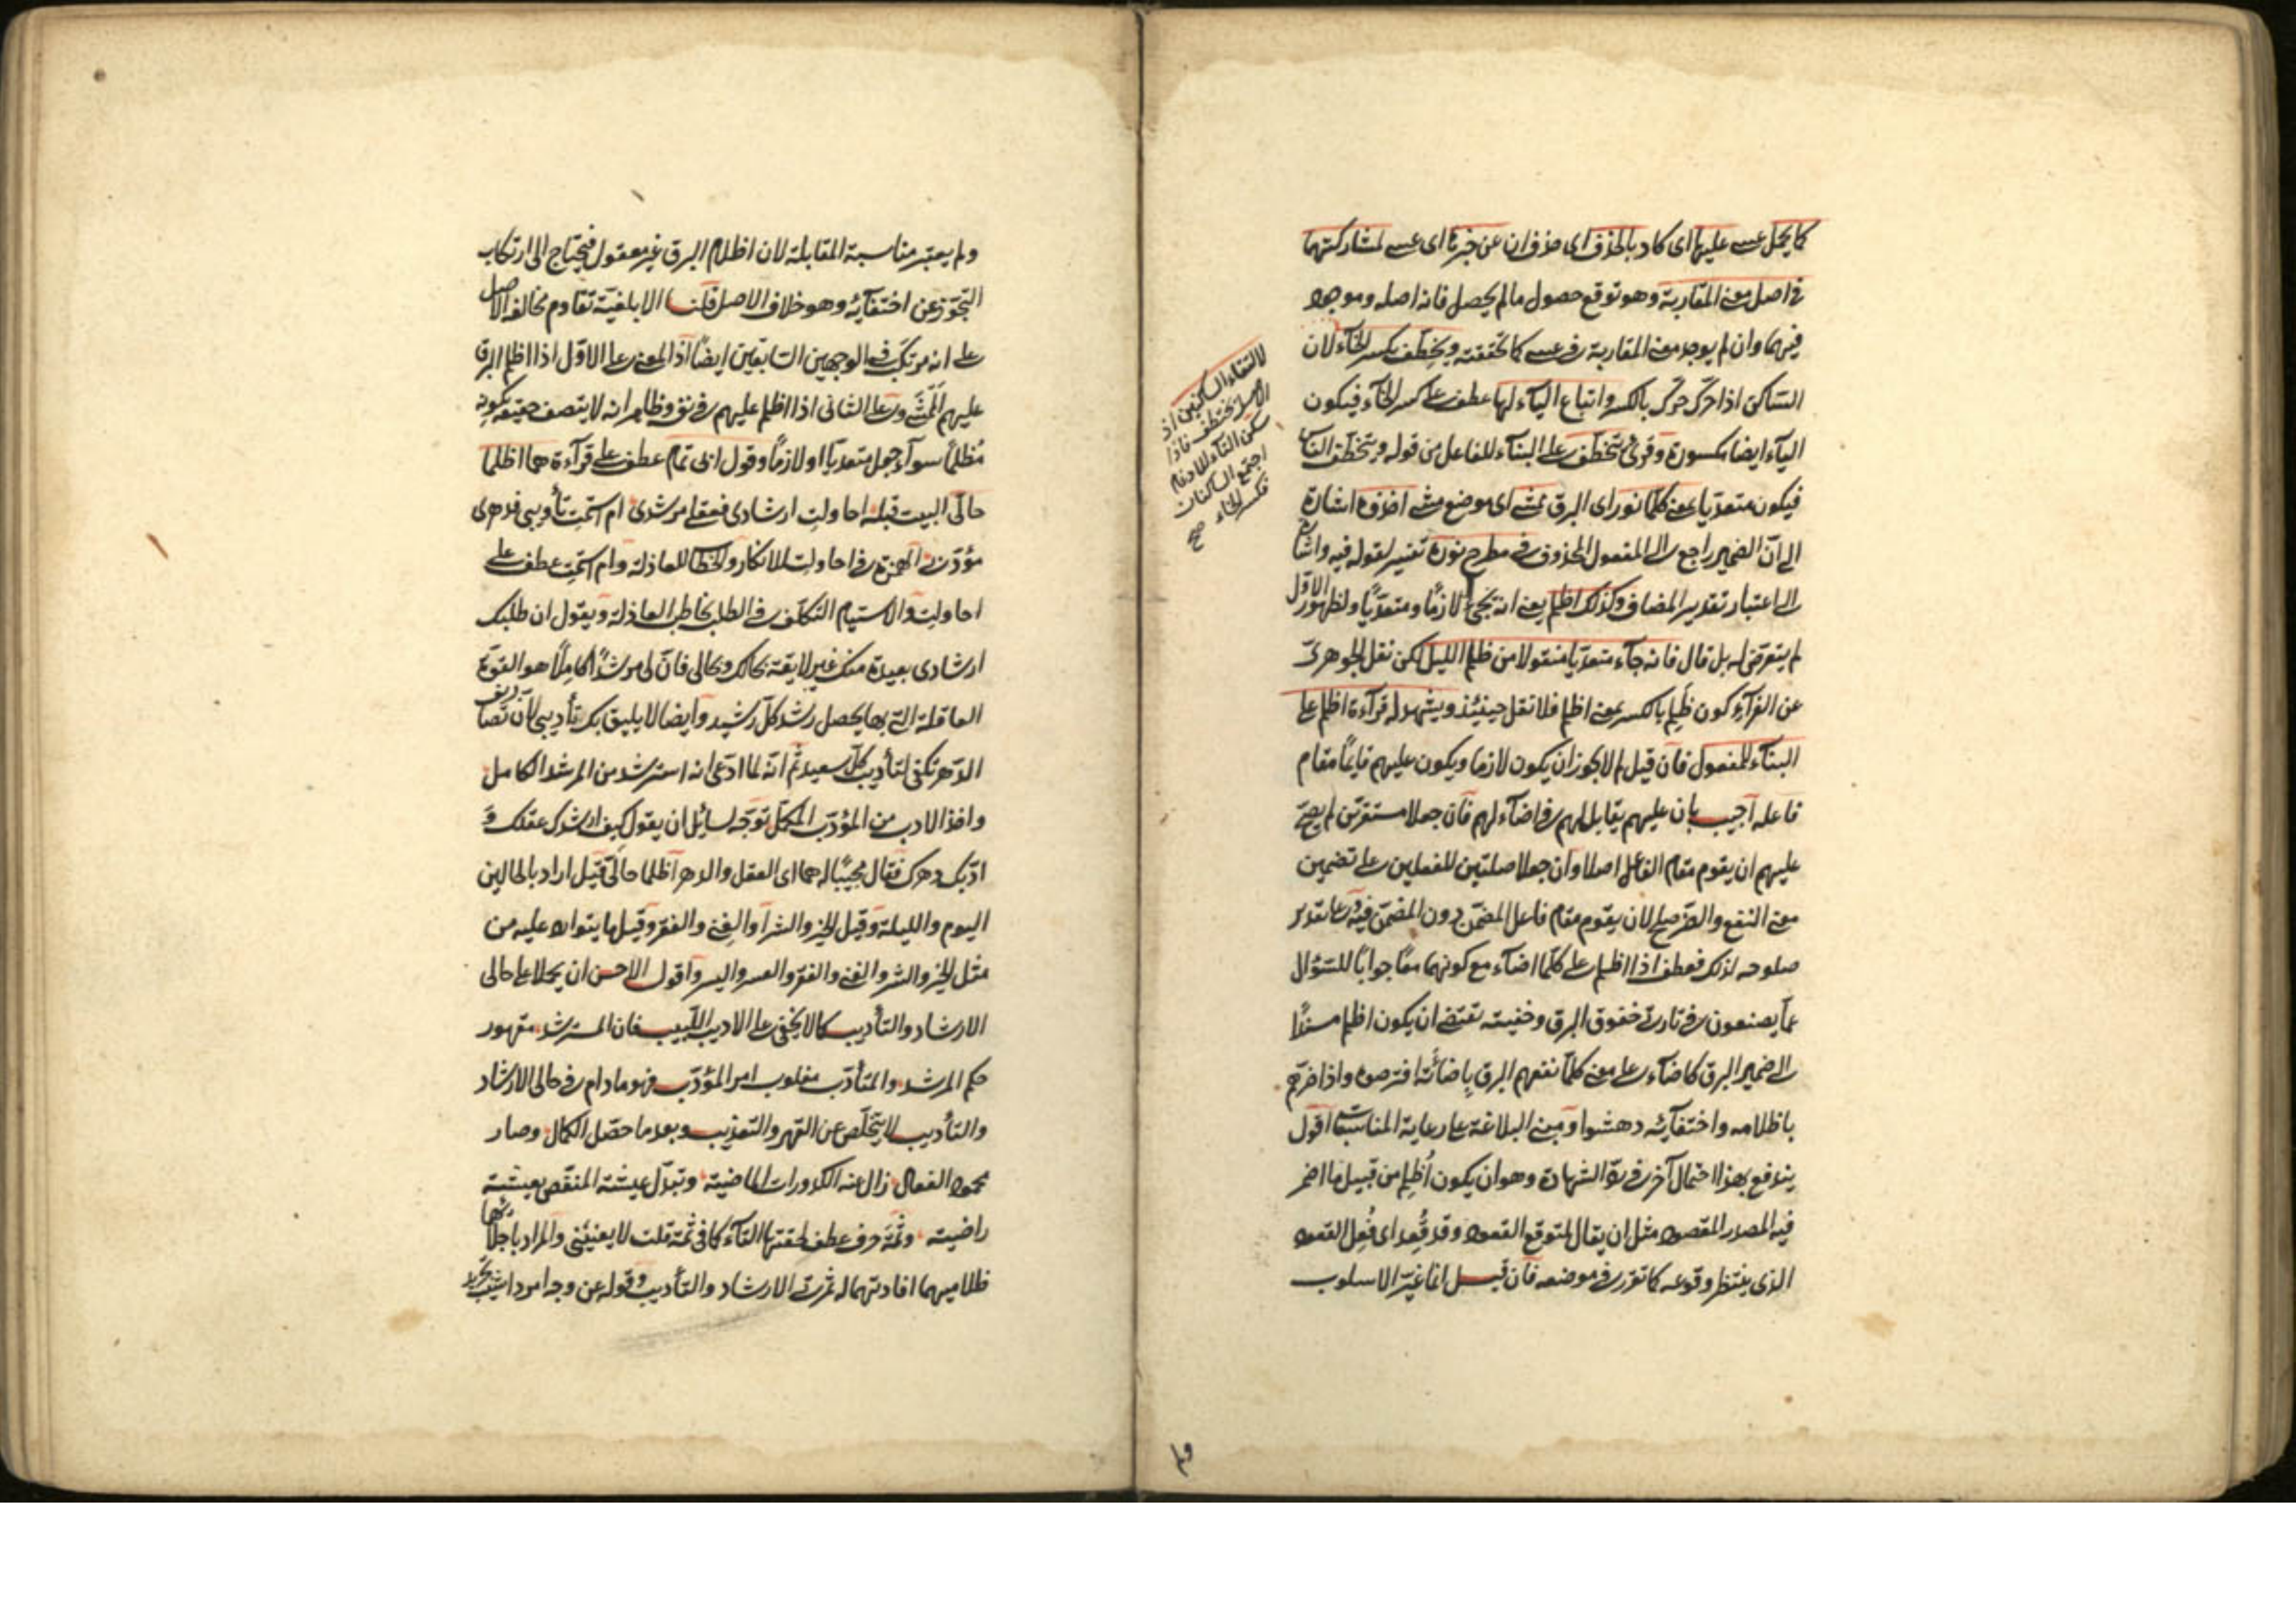 كما يحمل عسى عليها اى كاد بالحذف اى حذف ان عن خبرها اى عسى لمشاركتهما
فى اصل معنى المقاربة وهو توقع حصول ما لم يحصل فانه اصله وموجود
فيهما وان لم يوجد معنى المقاربة فى عسى كما تحققته ويخطف بكسر الخآء لان
الساكن اذا حرك حرك بالكسر واتباع اليآء لها عطف على كسر الخآء فيكون
اليآء ايضا مكسورة وقرئ يتخطف على البنآء للفاعل من قوله ويتخطف الناس
فيكون متعديا بمعنى كلما نور اى البرق ممشى اى موضع مشى اخذوه اشارة
الى ان الضمير راجع الى المفعول المحذوف فى مطرح نوره تفسير لقوله فيه واشارة
الى اعتبار تقدير المضاف وكذلك اظلم يعنى انه يجئ لازما ومتعديا ولظهور الاول
لم يتعرض له بل قال فانه جآء متعديا منقولا من ظلم الليل لكن نقل الجوهرى
عن الفرآء كون ظلم بالكسر بمعنى اظلم فلا نقل حينئذ ويشهد له قرآءة اظلم على
البنآء للمفعول فان قيل لم لا يجوز ان يكون لازما ويكون عليهم قائما مقام
فاعله اجيب بان عليهم يقابل لهم فى اضآء لهم فان جعلا مستقرين لم يصح
عليهم ان يقوم مقام الفاعل اصلا وان جعلا صلتين للفعلين على تضمين
معنى النفع والضر صح لان يقوم مقام فاعل المضمن دون المضمن فيه وعلى تقدير
صلوحه لذلك فعطف اذا اظلم على كلما اضآء مع كونهما معا جوابا للسؤال
عما يصنعون فى تارتى خفوق البرق وخفيته تقتضى ان يكون اظلم مسندا
الى ضمير البرق كاضآء على معنى كلما نفعهم البرق باضائته افترصوه واذا ضرهم
باظلامه واختفآئه دهشوا ومبنى البلاغة على رعاية المناسبات اقول
يندفع بهذا احتمال آخر فى رد الشهادة وهو ان يكون اُظلم من قبيل ما اضمر
فيه المصدر المقصود مثل ان يقال لمتوقع القعود وقد قُعد اى فُعل القعود
الذى ينتظر وقوعه كما تقرر فى موضعه فان قيل انما غير الاسلوب
لالتقاء الساكنين اذ
الاصل يختطف فاذا
سكن التآء للادغام
اجتمع الساكنان
فكسر الخاء
صح
ولم
ولم يعتبر مناسبة المقابلة لان اظلام البرق غير معقول فيحتاج الى ارتكاب
التجوز عن اختفآئه وهو خلاف الاصل قلنا الابلغية تقاوم مخالفة الاصل
على انه مرتكب فى الوجهين السابقين ايضا اذ المعنى على الاول اذا اظلم البرق
عليهم الممشى وعلى الثانى اذا اظلم عليهم فى نفسه وظاهر انه لا يتصف حقيقة بكونه
مُظلما سوآء جعل متعديا او لازما وقول ابى تمام عطف على قرآءة هما اظلما
حالى البيت قبله احاولت ارشادى فعقلى مرشدى ام استمت تأديبى فدهرى
مؤدبى الهمزة فى احاولت للانكار والخطاب للعاذلة وام استمت عطف على
احاولت والاستيام التكلف فى الطلب يخاطب العاذلة ويقول ان طلبك
ارشادى بعيدة منك غير لايقة بحالك وبحالى فان لى مرشدا كاملا هو القوة
العاقلة التى بها يحصل رشد كل رشيد وايضا لا يليق بك تأديبى لان تصاريف
الدهر تكفى لتأديب كل سعيد ثم انه لما ادعى انه استرشد من المرشد الكامل
واخذ الادب من المؤدب المكمل توجه لسائل ان يقول كيف ارشدك عقلك و
ادبك دهرك فقال مجيبا له هما اى العقل والدهر اظلما حالى قيل اراد بالحالين
اليوم والليلة وقيل الخير والشر او الغنى والفقر وقيل ما يتوارد عليه من
مثل الخير والشر والغنى والفقر والعسر واليسر واقول الاحسن ان يحملا على حالى
الارشاد والتأديب كما لا يخفى على الاديب اللبيب فان المسترشد مقهور
حكم المرشد والمتأدب مغلوب امر المؤدب فهو ما دام فى حالى الارشاد
والتأديب لا يتخلص عن القهر والتعذيب وبعد ما حصل الكمال وصار
محمود الفعال زال عنه الكدورات الماضية وتبدل عيشته المنغص بعيشته
راضية وثمة حرف عطف لحقتها التآء كما فى ثمة قلت لا يعنينى والمراد باجلائهما
ظلاميهما افادتهما له ثمرتى الارشاد والتأديب وقوله عن وجه امرد اشيب تجريد